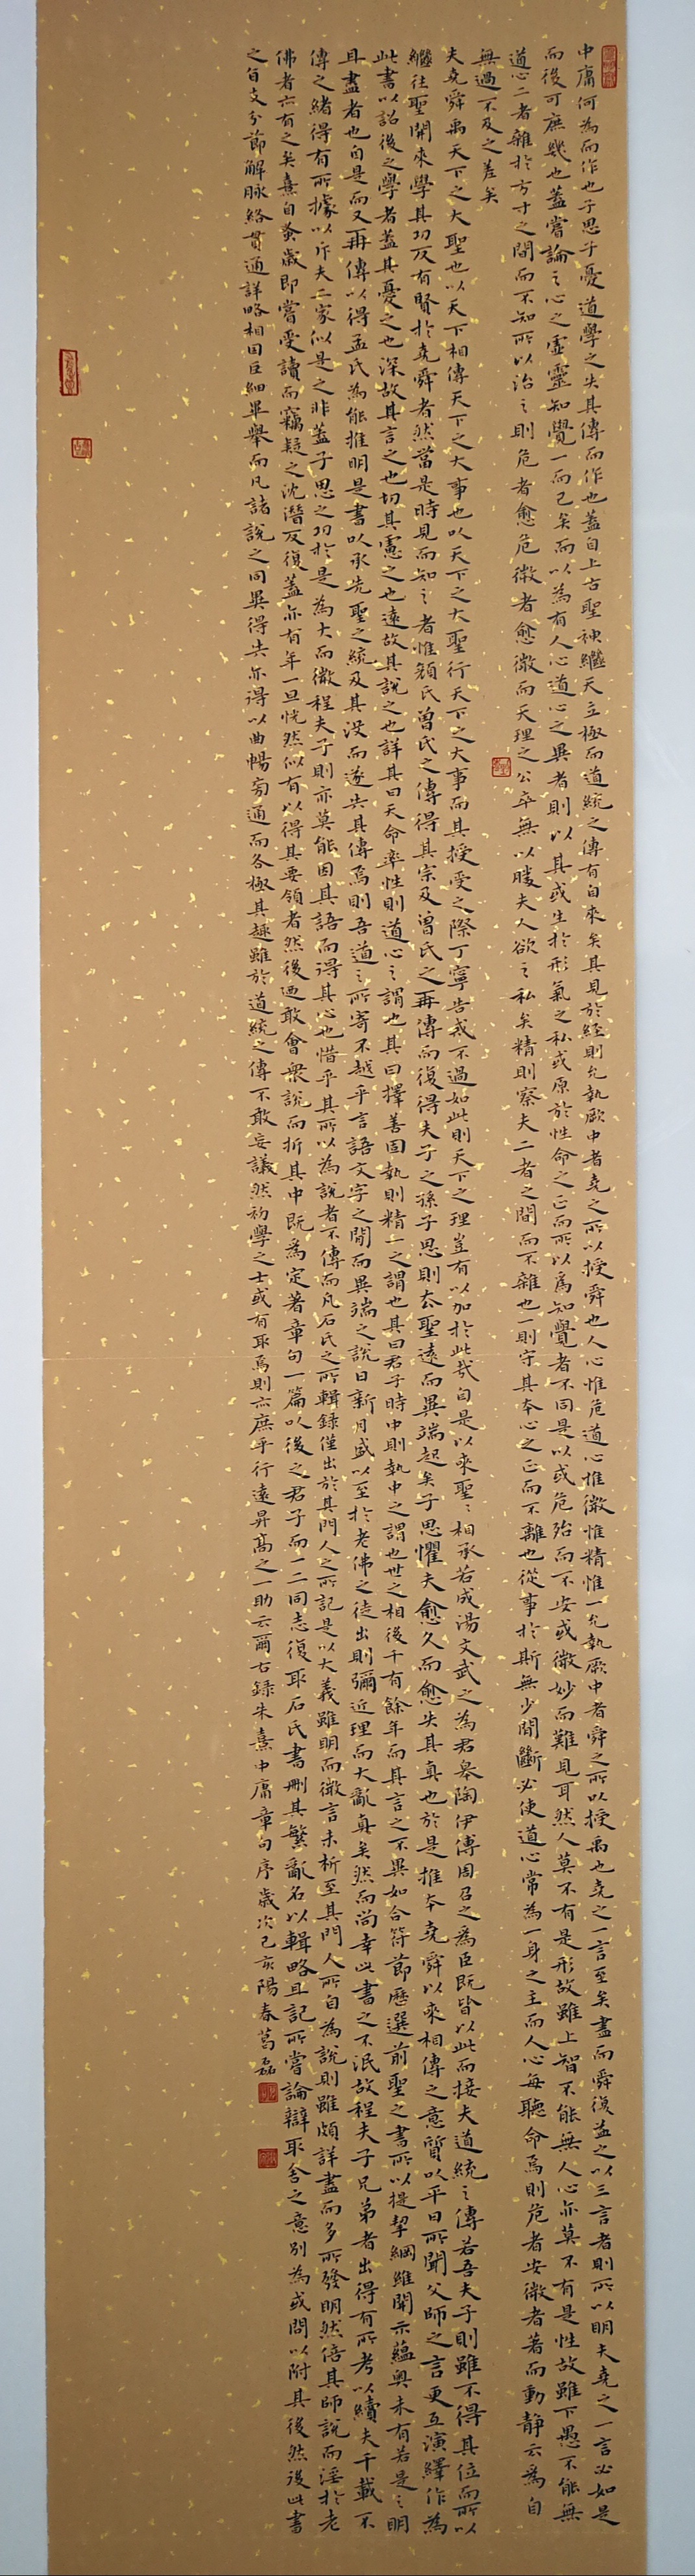 中庸何為而作也子思子憂道學之失其傳而作也蓋自上古聖神繼天立極而道統之傳有自來矣其見於經則允執厥中者堯之所以授舜也人心惟危道心惟微惟精惟一允執厥中者舜之所以授禹也堯之一言至矣盡而舜復益之以三言者則所以明夫堯之一言必如是
而後可庶幾也蓋嘗論之心之虛靈知覺一而已矣而以為有人心道心之異者則以其或生於形氣之私或原於性命之正而所以為知覺者不同是以或危殆而不安或微妙而難見耳然人莫不有是形故雖上智不能無人心亦莫不有是性故雖下愚不能無
道心二者雜於方寸之間而不知所以治之則危者愈危微者愈微而天理之公卒無以勝夫人欲之私矣精則察夫二者之間而不雜也一則守其本心之正而不離也從事於斯無少間斷必使道心常為一身之主而人心每聽命焉則危者安微者著而動靜云為自
無過不及之差矣
夫堯舜禹天下之大聖也以天下相傳天下之大事也以天下之大聖行天下之大事而其授受之際丁寧告戒不過如此則天下之理豈有以加於此哉自是以來聖聖相承若成湯文武之為君皋陶伊傅周召之為臣既皆以此而接夫道統之傳若吾夫子則雖不得其位而所以
繼往聖開來學其功反有賢於堯舜者然當是時見而知之者惟顏氏曾氏之傳得其宗及曾氏之再傳而復得夫子之孫子思則去聖遠而異端起矣子思懼夫愈久而愈失其真也於是推本堯舜以來相傳之意質以平日所聞父師之言更互演繹作為
此書以詔後之學者蓋其憂之也深故其言之也切其慮之也遠故其說之也詳其曰天命率性則道心之謂也其曰擇善固執則精一之謂也其曰君子時中則執中之謂也世之相後千有餘年而其言之不異如合符節歷選前聖之書所以提挈綱維開示蘊奧未有若是之明
且盡者也自是而又再傳以得孟氏為能推明是書以承先聖之統及其沒而遂失其傳焉則吾道之所寄不越乎言語文字之間而異端之說日新月盛以至於老佛之徒出則彌近理而大亂真矣然而尚幸此書之不泯故程夫子兄弟者出得有所考以續夫千載不
傳之緒得有所據以斥夫二家似是之非蓋子思之功於是為大而微程夫子則亦莫能因其語而得其心也惜乎其所以為說者不傳而凡石氏之所輯錄僅出於其門人之所記是以大義雖明而微言未析至其門人所自為說則雖頗詳盡而多所發明然倍其師說而淫於老
佛者亦有之矣熹自蚤歲即嘗受讀而竊疑之沈潛反復蓋亦有年一旦恍然似有以得其要領者然後迺敢會眾說而折其中既為定著章句一篇以後之君子而一二同志復取石氏書刪其繁亂名以輯略且記所嘗論辯取舍之意別為或問以附其後然後此書
之旨支分節解脉絡貫通詳略相因巨細畢舉而凡諸說之同異得失亦得以曲暢旁通而各極其趣雖於道統之傳不敢妄議然初學之士或有取焉則亦庶乎行遠昇高之一助云爾右錄朱熹中庸章句序歲次己亥陽春葛磊